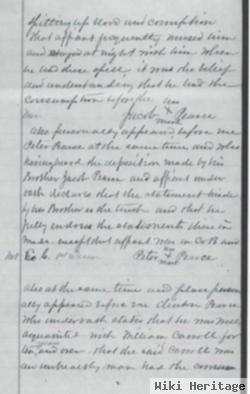 spitting up blood and corruption
that affiant frequently nursed him
and staged at night with him when
he had these spells it was the belief
and understanding that he had the
consumption before the
war. his
Jacob x Pearce
mark
also personally appeared before me
Peter Pearce at the same time and who
having heard the deposition made by his
Brother Jacob Pearce and affiant under
oath declares that the statement made
by his Brother is the truth and that he
fully endorses the statements therein
made except that affiant was in Co B and
not Co C his
Peter x Pearce
mark
also at the same time and place person
ally appeared before me Pearce
who under oath states that he was well
acquainted with William Carroll for
and over that the said Carroll was
an man had the consum
Wiki Heritage